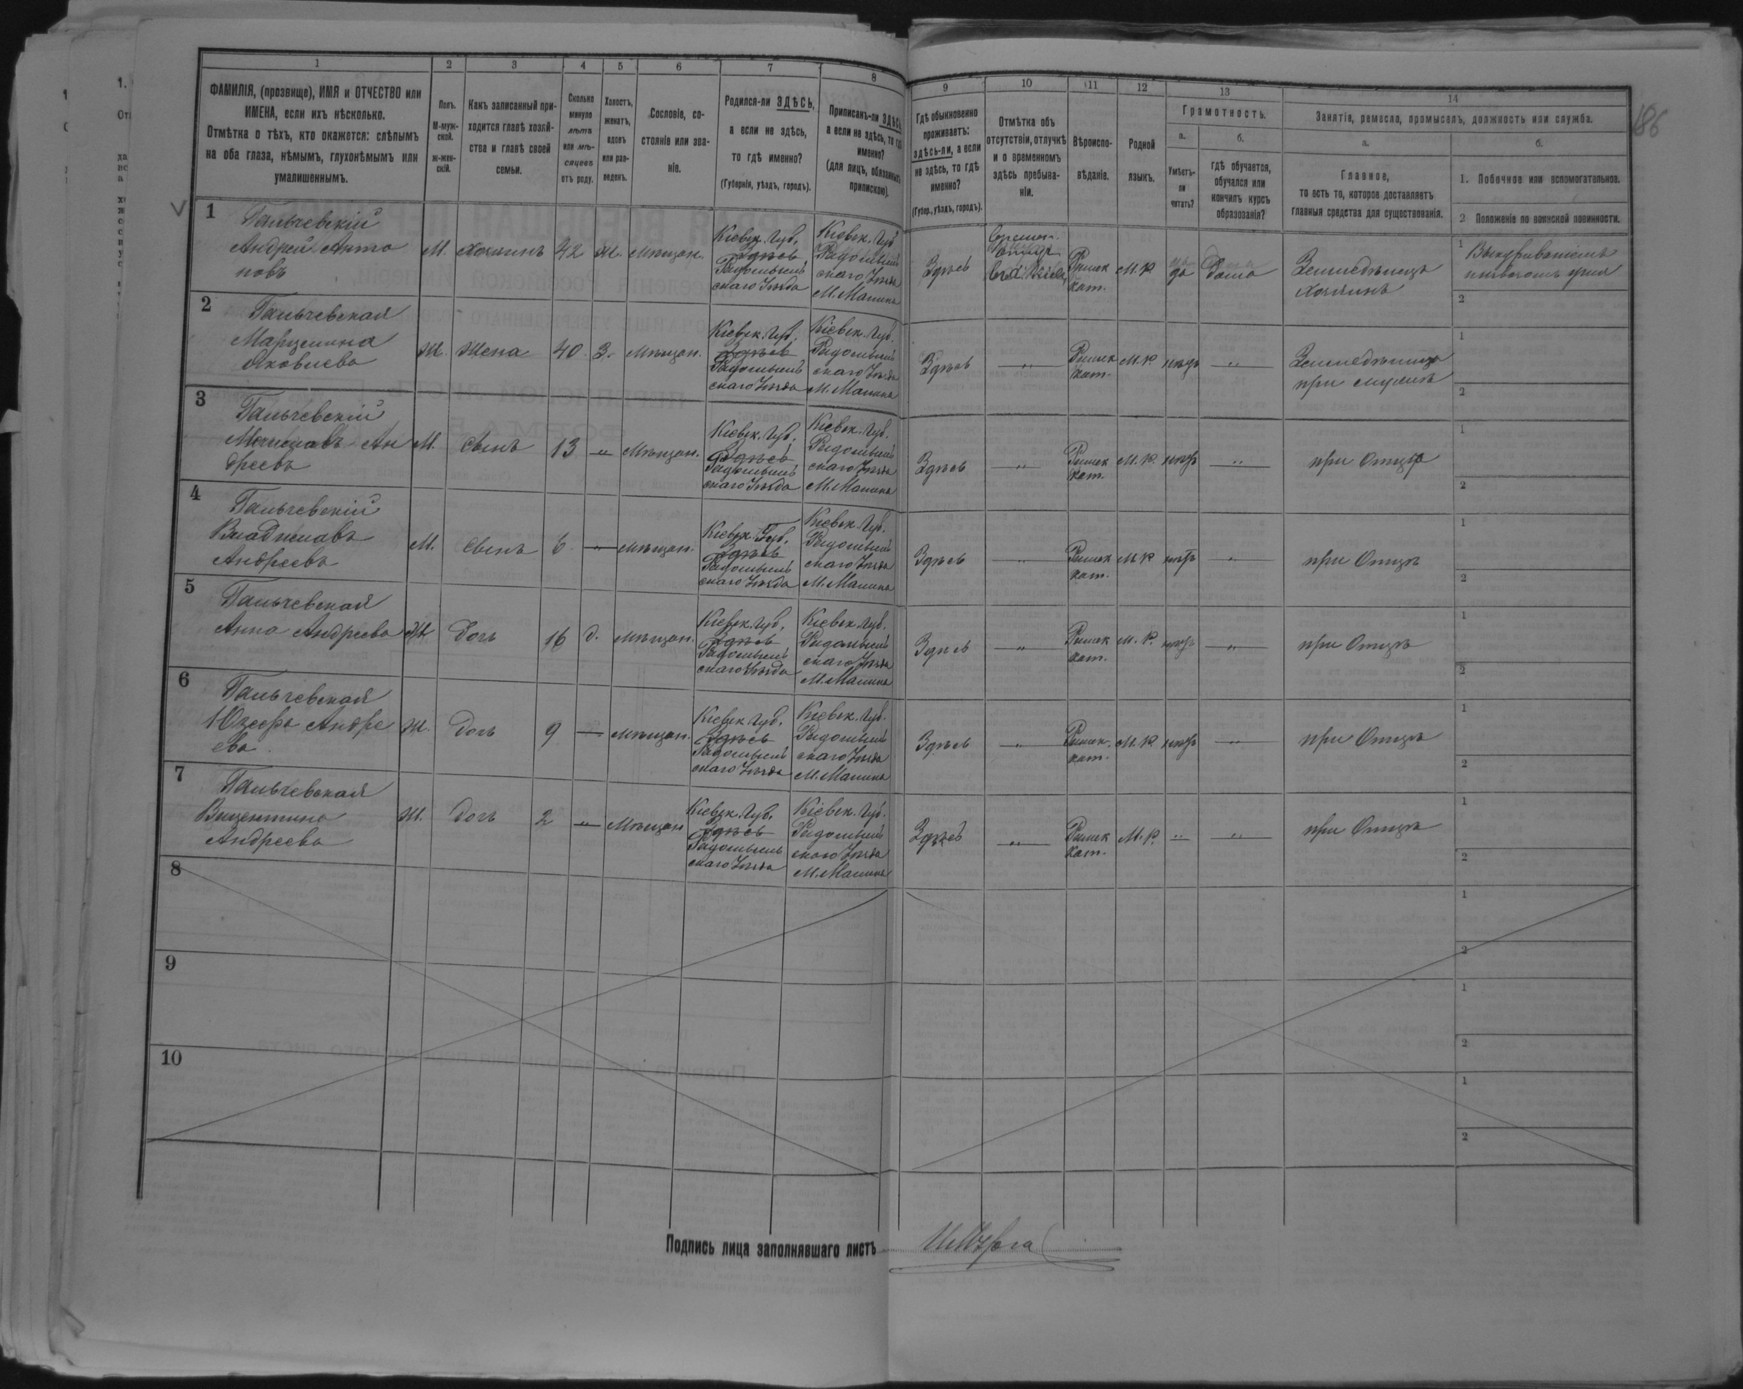 1 2 3 4 5 6 7 8 9 10 11 12 13 14
ФАМИЛІЯ, (прозвище), ИМЯ и ОТЧЕСТВО или
ИМЕНА, если ихъ нѣсколько.
Отмѣтка о тѣхъ, кто окажется: слѣпымъ
на оба глаза, нѣмымъ, глухонѣмымъ или
умалишеннымъ.
Полъ.
М-муж-
ской.
ж-жен-
скій.
Какъ записанный при-
ходится главѣ хозяй-
ства и главѣ своей
семьи.
Сколько
минуло
лѣтъ
или мѣ-
сяцевъ
отъ роду.
Холостъ,
женатъ,
вдовъ
или раз-
веденъ.
Сословіе, со-
стояніе или зва-
ніе.
Родился-ли ЗДѢСЬ,
а если не здѣсь,
то гдѣ именно?
(Губернія, уѣздъ, городъ).
Приписанъ-ли ЗДѢСЬ,
а если не здѣсь, то гдѣ
именно?
(для лицъ, обязанныхъ
припискою).
Гдѣ обыкновенно
проживаетъ:
здѣсь-ли, а если
не здѣсь, то гдѣ
именно?
(Губер., уѣздъ, городъ).
Отмѣтка объ
отсутствіи, отлучкѣ
и о временномъ
здѣсь пребыва-
ніи.
Вѣроиспо-
вѣданіе.
Родной
языкъ.
Грамотность.
а.
Умѣетъ-
ли
читать?
б.
гдѣ обучается,
обучался или
кончилъ курсъ
образованія?
Занятія, ремесло, промыселъ, должность или служба.
а.
Главное,
то есть то, которое доставляетъ
главныя средства для существованія.
б.
1. Побочное или вспомогательное.
2 Положеніе по воинской повинности.
186
1
Гальчевскій
Андрей Анто
новъ
М. Хозяинъ 42 ж. Мѣщан.
Кіевск. Губ.
Здѣсь
Радомысль
скаго Уѣзда
Кіевск. Губ.
Радомысль
скаго Уѣзда
М. Малинъ
Здѣсь
Римск
кат.
М. Р. да Дома
Земледѣлецъ
Хозяинъ
1
2
2
Гальчевская
Марцелина
Яковлева
Ж. Жена 40 З. Мѣщан.
Кіевск. Губ.
Здѣсь
Радомысль
скаго Уѣзда
Кіевск. Губ.
Радомысль
скаго Уѣзда
М. Малинъ
Здѣсь — " —
Римск
кат.
М. Р. нѣтъ — " —
при мужѣ
1
2
3
Гальчевскій
Мечиславъ Ан
дреевъ
М. Сынъ 13 — " — Мѣщан.
Кіевск. Губ.
Здѣсь
Радомысль
скаго Уѣзда
Кіевск. Губ.
Радомысль
скаго Уѣзда
М. Малинъ
Здѣсь — " —
Римск
кат.
М. Р. нѣтъ — " — при Отцѣ
1
2
4
Гальчевскій
Владиславъ
Андреевъ
М. Сынъ 6 — " — Мѣщан.
Кіевск. Губ.
Здѣсь
Радомысль
скаго Уѣзда
Кіевск. Губ.
Радомысль
скаго Уѣзда
М. Малинъ
Здѣсь — " —
Римск
кат.
М. Р. нѣтъ — " — при Отцѣ
1
2
5
Гальчевская
Анна Андреева
Ж. Дочь 16 д. Мѣщан.
Кіевск. Губ.
Здѣсь
Радомысль
скаго Уѣзда
Кіевск. Губ.
Радомысль
скаго Уѣзда
М. Малинъ
Здѣсь — " —
Римск
кат.
М. Р. нѣтъ — " — при Отцѣ
1
2
6
Гальчевская
Юзефа Андре
ева
Ж. Дочь 9 — Мѣщан.
Кіевск. Губ.
Здѣсь
Радомысль
скаго Уѣзда
Кіевск. Губ.
Радомысль
скаго Уѣзда
М. Малинъ
Здѣсь — " —
Римск.
кат.
М. Р. нѣтъ — " — при Отцѣ
1
2
7
Гальчевская
Вицентина
Андреева
Ж. Дочь 2 — " — Мѣщан.
Кіевск. Губ.
Здѣсь
Радомысль
скаго Уѣзда
Кіевск. Губ.
Радомысль
скаго Уѣзда
М. Малинъ
Здѣсь — " —
Римск
кат.
М. Р. — " — — " — при Отцѣ
1
2
8
1
2
9
1
2
10
1
2
Подпись лица заполнявшаго листъ